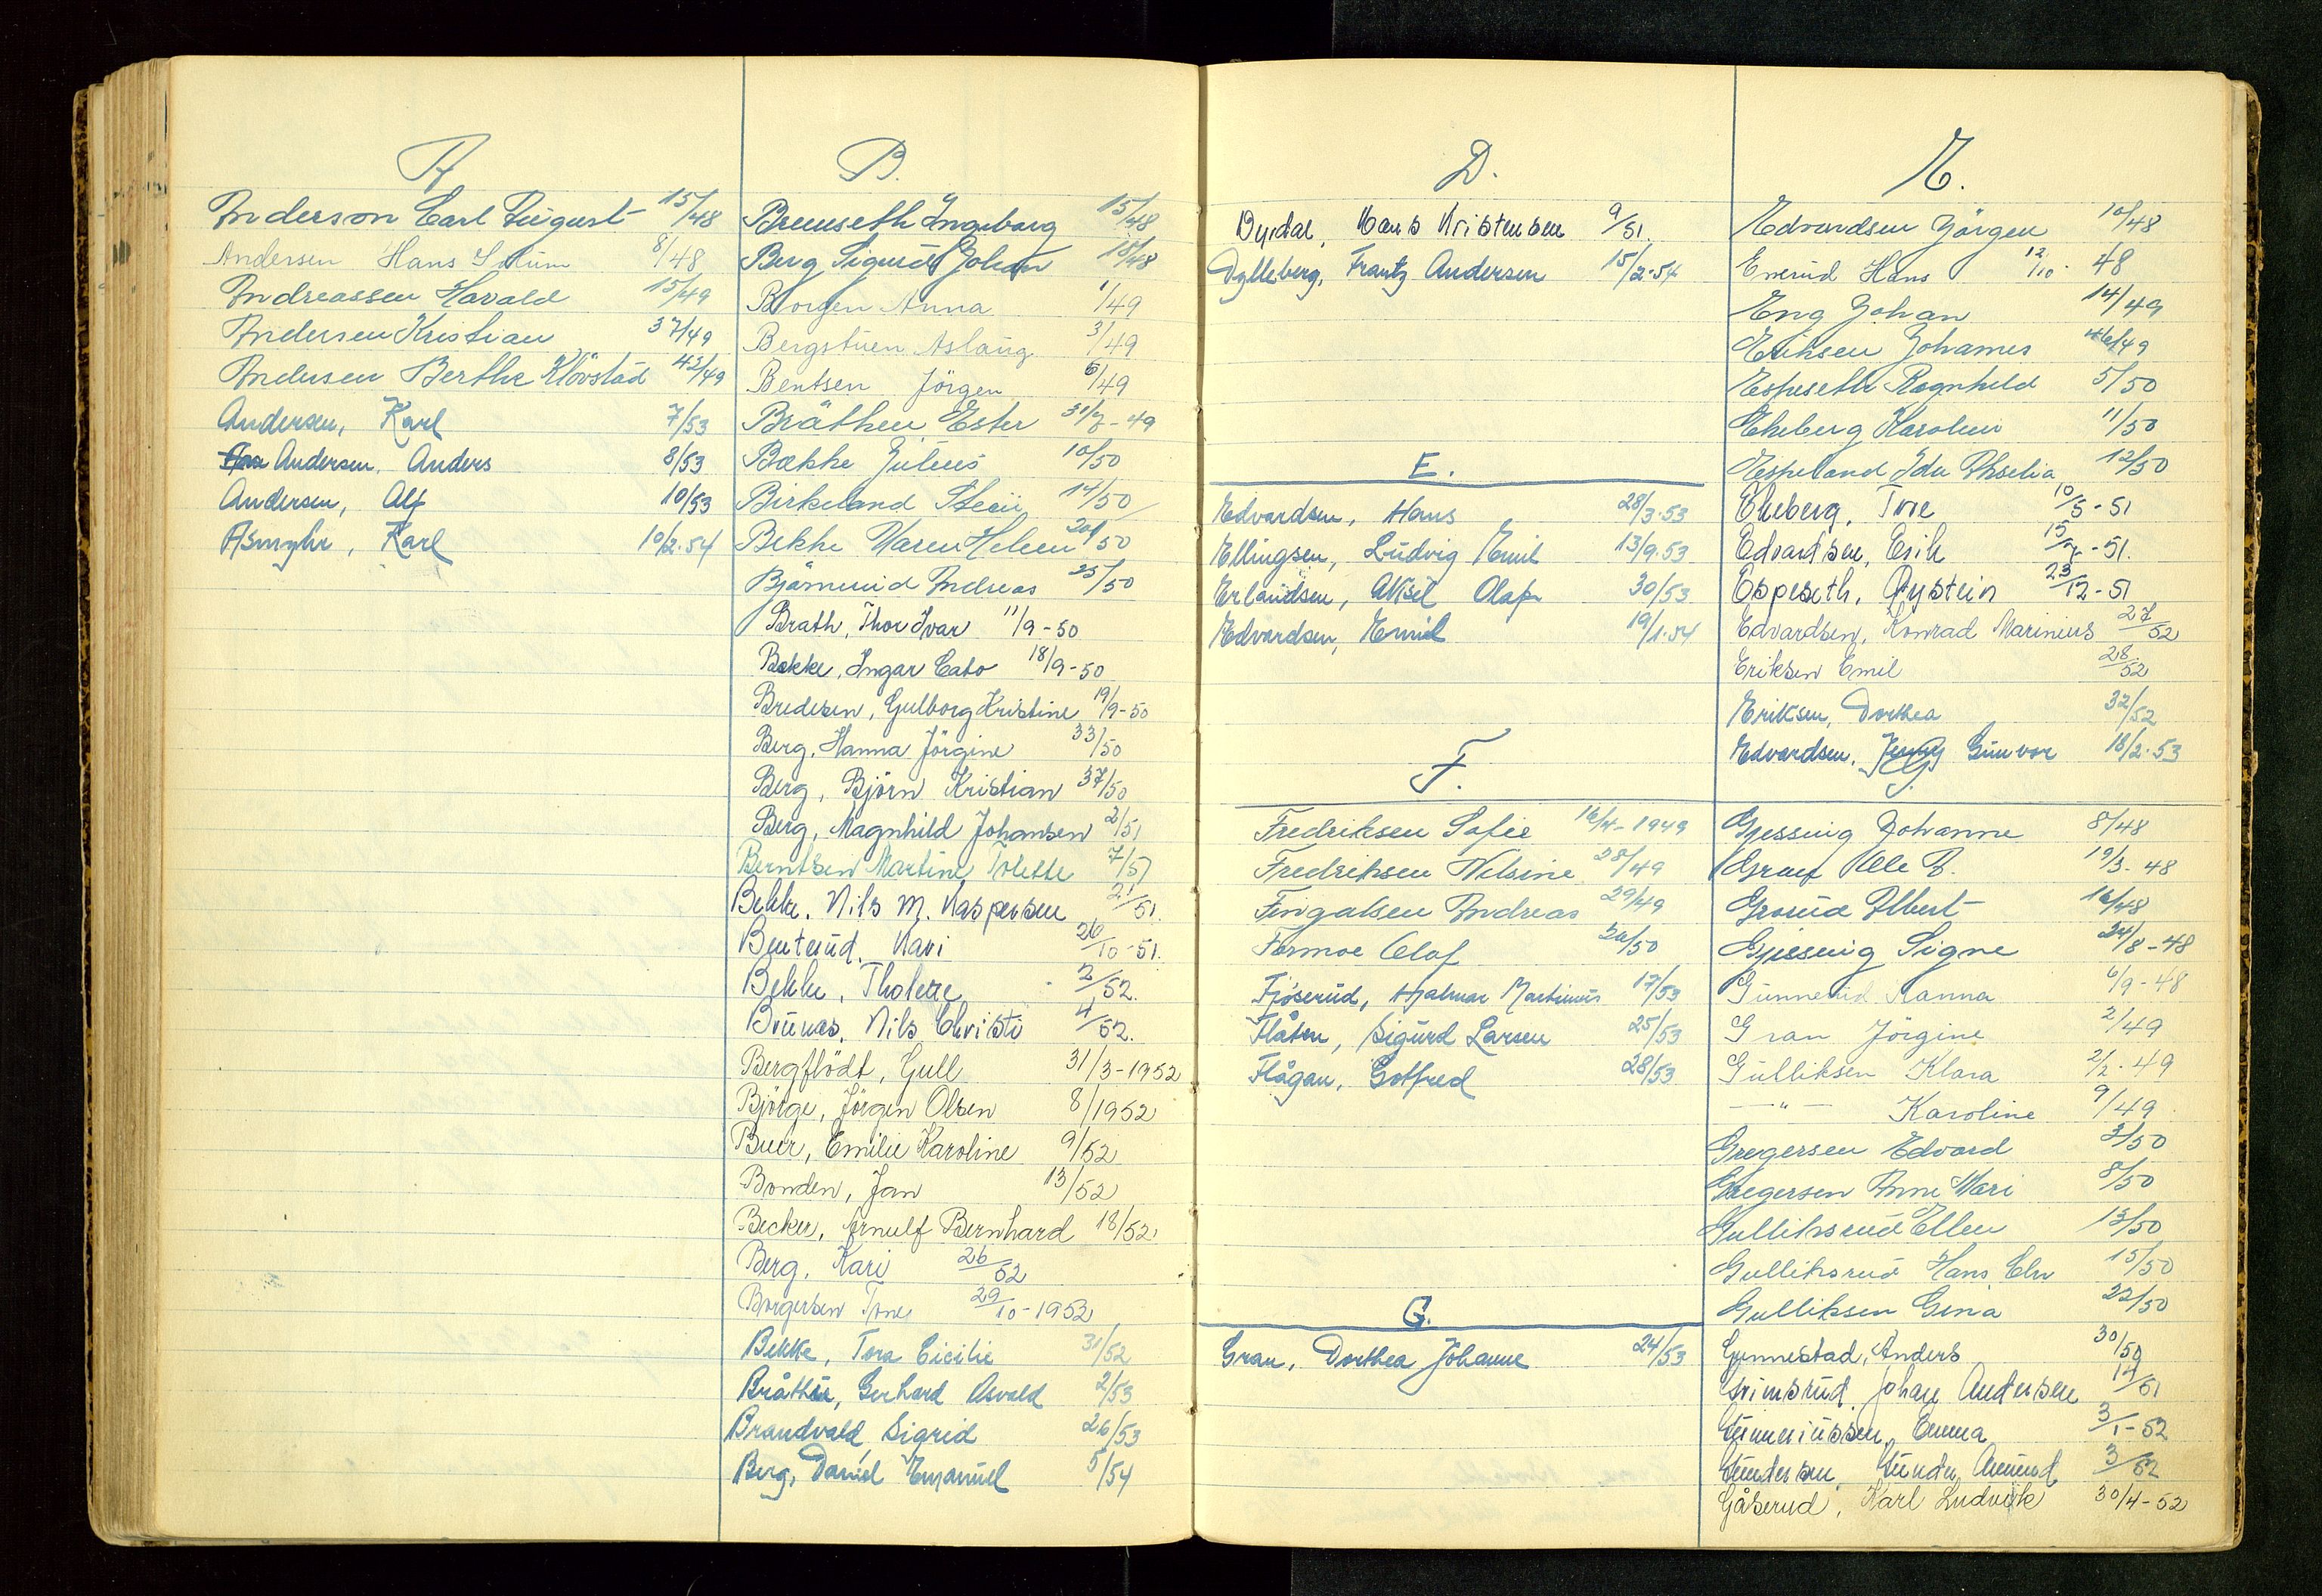 A
Anderson Carl August 15/48
Andersen Hans Solum 8/48
Andreassen Harald 15/49
Andersen Kristian 37/49
Andersen Berthe Klövstad 42/49
Andersen, Karl 7/53
Andersen, Anders 8/53
Andersen, Alf 10/53
Asmyhr, Karl 10/2.54
B.
Bremseth Ingeborg 15/48
Berg Sigurd Johan 18/48
Borgen Anna 1/49
Bergstuen Aslaug 3/49
Bentsen Jörgen 6/49
Bråthen Ester 31/7-49
Bække Julius 10/50
Birkeland 14/50
Bekke Maren Helene 20/50
Bjørnerud Andreas 25/50
Brath, Thor Ivar 11/9-50
Bekke, Ingar Cato 18/9-50
Bredesen, Gulborg Kristine 19/9-50
Berg, Hanna Jörgine 33/50
Berg, Björn Kristian 37/50
Berg, Magnhild Johansen 2/51
Berntsen Martine Tolette 7/51
Bekke, Nils M. Kaspersen 21/51.
Benterud, Kari 26/10-51.
Bekke, Tholette 2/52.
Brunas, Nils Christi 4/52.
Bergflödt, Gull 31/3-1952
Björge, Jörgen Olsen 8/1952
Buer, Emilie Karoline 9/52
Bonden, Jan 13/52
Becker, Arnulf Bernhard 18/52
Berg, Kari 26/52
Borgersen Tone 29/10-1952
Bekke, Tora Cicilie 31/52
Bråthen, Gerhard Osvald 2/53
Brandvold, Sigrid 26/53
Berg, Daniel Emanuel 5/54
D.
Dyrdal, Hans Kristensen 9/51.
Dylleberg, Frantz Andersen 15/2.54
E.
Edvardsen, Hans 28/3.53
Ellingsen, Ludvig Emil 13/9.53
Erlandsen, Aksel Olaf 30/53
Edvardsen, Emil 19/1.54
F.
Fredriksen Sofie 16/4-1949
Fredriksen Nilsine 28/49
Fingalsen Andreas 29/49
Formoe Olaf 26/50
Fjöserud, Hjalmar Martinius 17/53
Flåten, Sigurd Larsen 25/53
Flågan, Gotfred 28/53
G.
Gran, Dorthea Johanne 24/53
E.
Edvardsen Jörgen 10/48
Enerud Hans 12/10. 48
Eng Johan 14/49
Eriksen Johannes 46/49
Espeseth Ragnhild 5/50
Ekeberg Karoline 11/50
Espeland Ida 12/50
Ekeberg, Tore 10/5-51
Edvardsen, Erik 15/7-51.
Espeseth, Øystein 23/12-51
Edvardsen, Konrad Marinius 27/52
Eriksen Emil 28/52
Eriksen, Dorthea 32/52
Edvardsen, Jenny Gunvor 18/2.53
G.
Gjessing Johanne 8/48
Graff Ole B. 19/3-48
Grorud Albert 16/48
Gjessing Signe 24/8-48
Gunnerud Hanna 6/9-48
Gran Jörgine 2/49
Gulliksen Klara 2/2.49
— " — Karoline 9/49
Gregersen Edvard 3/50
Gregersen Anne Mari 8/50
Gulliksrud Ellen 13/50
Gulliksrud Hans Chr 15/50
Gulliksen Gina 22/50
Gunnestad, Anders 30/50
Grimsrud, Johan Andersen 14/51
Gunneriussen, Emma 3/1-52
Gundersen, Gunda Amund 3/52
Gåserud, Karl Ludvik 30/4-52